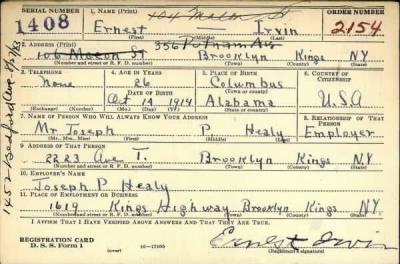 SERIAL NUMBER 1. NAME (Print) ORDER NUMBER
1408 Ernest Irvin 2154
(First) (Middle) (Last)
2. ADDRESS (Print) 356 Putnam Ave
106 Macon St Brooklyn Kings NY
(Number and street or R. F. D. number) (Town) (County) (State)
3. TELEPHONE 4. AGE IN YEARS 5. PLACE OF BIRTH 6. COUNTRY OF CITIZENSHIP
None 26 Columbus
DATE OF BIRTH (Town or county)
Oct 14 1914 Alabama U.S.A
(Exchange) (Number) (Mo.) (Day) (Yr.) (State or country)
7. NAME OF PERSON WHO WILL ALWAYS KNOW YOUR ADDRESS 8. RELATIONSHIP OF THAT PERSON
Mr Joseph P. Healy Employer
(Mr., Mrs., Miss) (First) (Middle) (Last)
9. ADDRESS OF THAT PERSON
2223 Ave T. Brooklyn Kings NY
(Number and street or R. F. D. number) (Town) (County) (State)
10. EMPLOYER'S NAME
Joseph P Healy
11. PLACE OF EMPLOYMENT OR BUSINESS
1619 Kings Highway Brooklyn Kings NY
(Number and street or R. F. D. number) (Town) (County) (State)
I AFFIRM THAT I HAVE VERIFIED ABOVE ANSWERS AND THAT THEY ARE TRUE.
REGISTRATION CARD
D. S. S. Form 1 (over) 16—17105 Ernest Irvin
(Registrant's signature)
1452 Bedford Ave